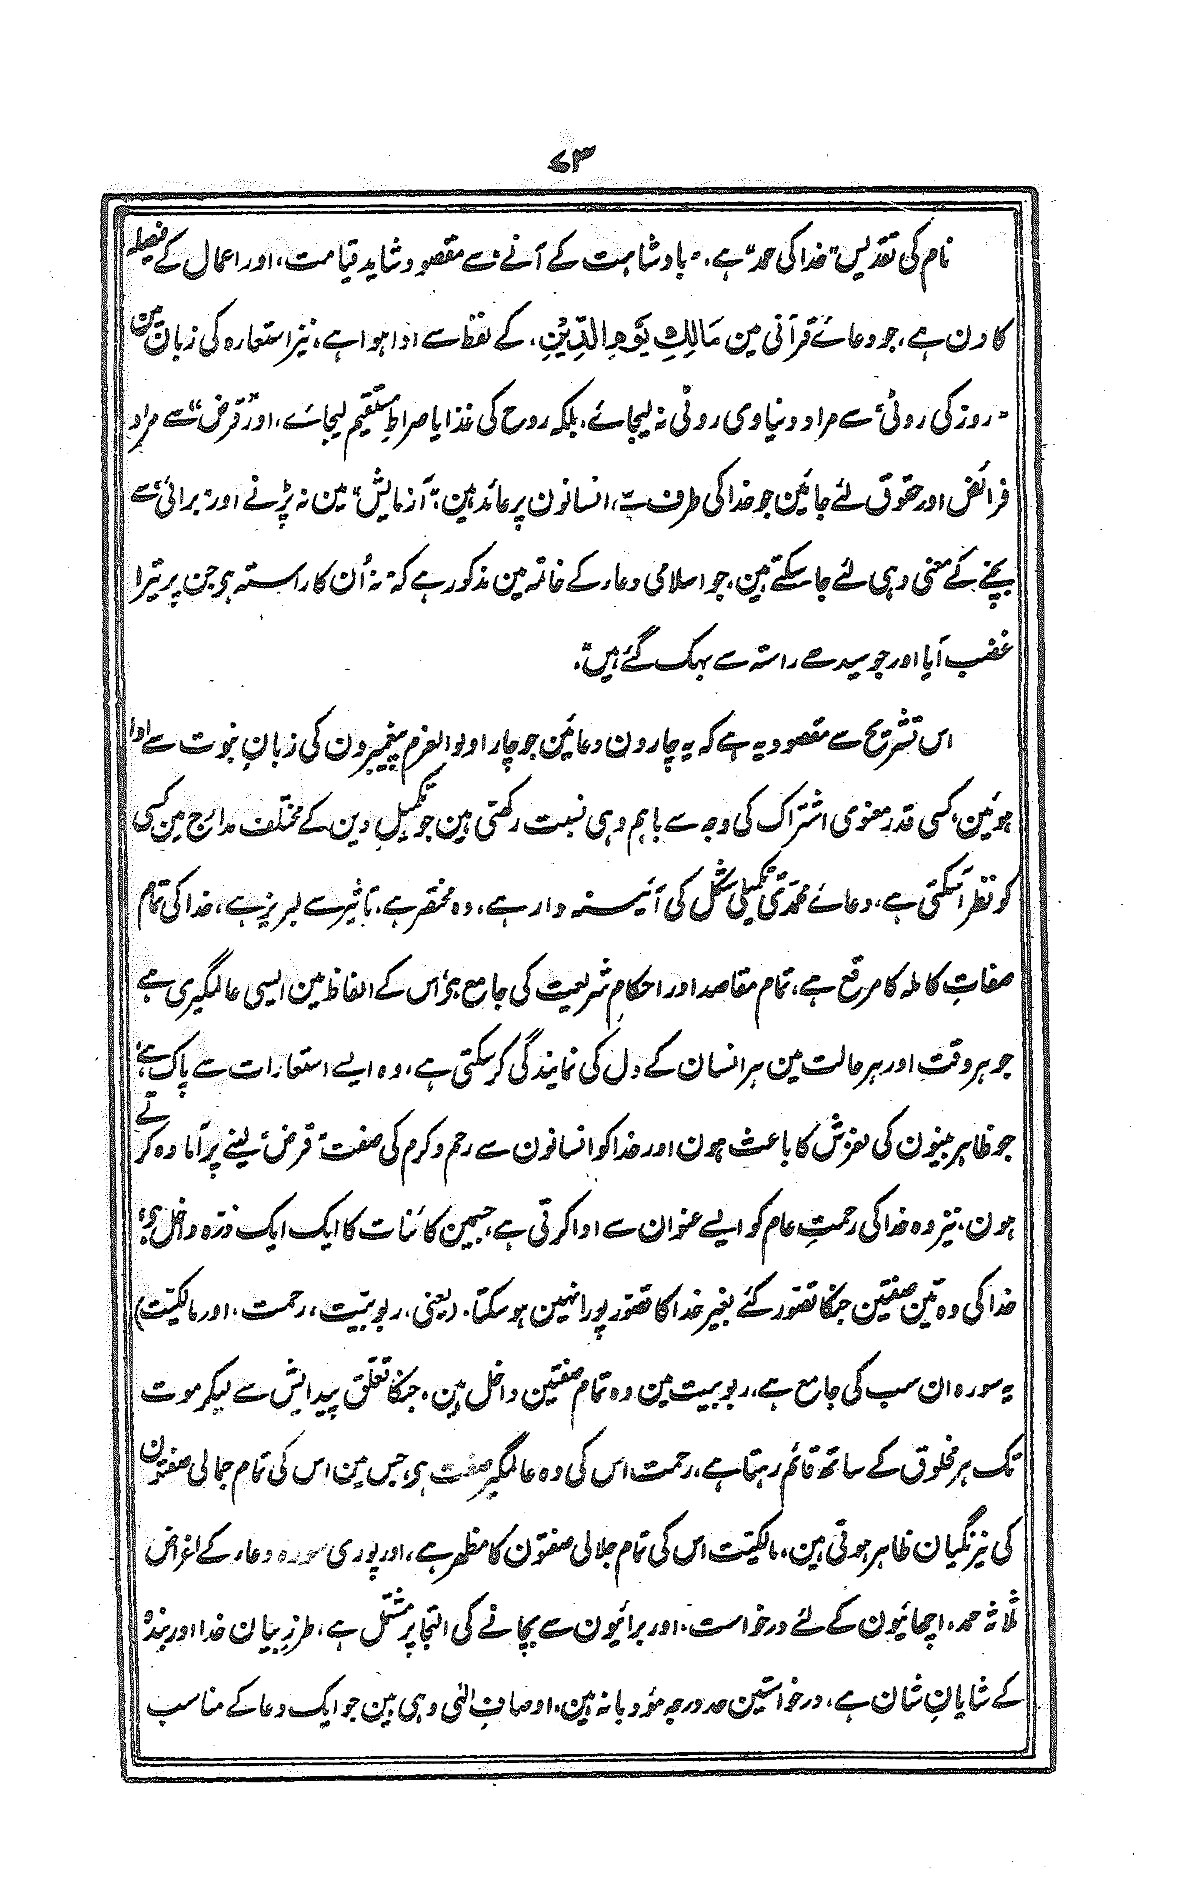 ۷۳
نام کی تقدیس "خدا کی حمد" ہے، "بادشاہت کے آنے" سے مقصود شاید قیامت، اور اعمال کے فیصلہ
کا دن ہے، جو دعائے قرآنی مین مَالِكِ يَوْمِ الدِّيْنِ، کے لفظ سے ادا ہوا ہے، نیز استعارہ کی زبان مین
"روز کی روٹی" سے مراد دنیاوی روٹی نہ لیجائے، بلکہ روح کی غذا یا صراطِ مستقیم لیجائے، اور "قرض" سے مراد
فرائض اور حقوق لئے جائین جو خدا کی طرف سے، انسانون پر عائد ہین، "آزمایش" مین نہ پڑنے اور "برائی" سے
بچنے کے معنی وہی لئے جا سکتے ہین، جو اسلامی دعاء کے خاتمہ مین مذکور ہے کہ "نہ اُن کا راستہ ہو جن پر تیرا
غضب آیا اور جو سیدھے راستہ سے بہک گئے ہین"۔
اس تشریح سے مقصود یہ ہے کہ یہ چارون دعائین جو چار اولوالعزم پیغمبرون کی زبانِ نبوت سے ادا
ہوئین، کسی قدر معنوی اشتراک کی وجہ سے باہم وہی نسبت رکھتی ہین جو تکمیلِ دین کے مختلف مدارج مین کسی
کو نظر آسکتی ہے، دعائے محمدیؐ تکمیلی شکل کی آئینہ دار ہے، وہ مختصر ہے، تاثیر سے لبریز ہے، خدا کی تمام
صفاتِ کاملہ کا مرقع ہے، تمام مقاصد اور احکامِ شریعت کی جامع ہو، اس کے الفاظ مین ایسی عالمگیری ہے
جو ہر وقت اور ہر حالت مین ہر انسان کے دل کی نمایندگی کر سکتی ہے، وہ ایسے استعارات سے پاک ہے،
جو ظاہر بینون کی لغزش کا باعث ہون اور خدا کو انسانون سے رحم و کرم کی صفت "قرض" لینے پر آمادہ کرتے
ہون، نیز وہ خدا کی رحمتِ عام کو ایسے عنوان سے ادا کرتی ہے، جسمین کائنات کا ایک ایک ذرّہ داخل ہو،
خدا کی وہ تین صفتین جنکا تصور کئے بغیر خدا کا تصور پورا نہین ہو سکتا، (یعنی، ربوبیت، رحمت، اور مالکیت)
یہ سورہ ان سب کی جامع ہے، ربوبیت مین وہ تمام صفتین داخل ہین، جنکا تعلق پیدائش سے لیکر موت
تک ہر مخلوق کے ساتھ قائم رہتا ہے، رحمت اس کی وہ عالمگیر صفت ہو، جس مین اس کی تمام جمالی صفتون
کی نیزنگیان ظاہر ہوتی ہین، مالکیت اس کی تمام جلالی صفتون کا مظہر ہے، اور پوری سورہ دعاء کے اغراض
ثلاثہ حمد، اچھائیون کے لئے درخواست، اور برائیون سے بچانے کی التجا پر مشتمل ہے، طرزِ بیان خدا اور بندہ
کے شایانِ شان ہے، درخواستین حد درجہ مؤدبانہ ہین، اوصافِ الٰہی وہی ہین جو ایک دعا کے مناسب